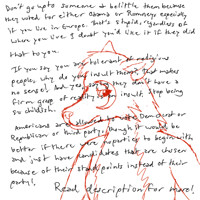 Don't go up to someone & belittle them because
they voted for either Obama or Romney, especially
if you live in Europe. That's stupid, regardless of
where you live. I doubt you'd like it if they did
that to you.
If you say you are tolerant of religious
people, why do you insult them? That makes
no sense! And yes, saying they don't have a
firm grasp of reality is an insult. Stop being
so childish.
Americans are allowed to be Democrat or
Republican or third party, though it would be
better if there were no parties to begin with
and just have candidates that are chosen
because of their standpoints instead of their
party!
Read description for more!